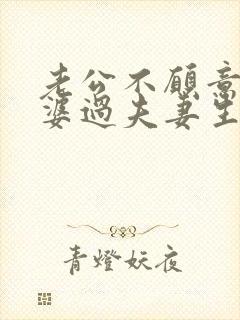 老公不願意
婆過夫妻生
青燈妖夜